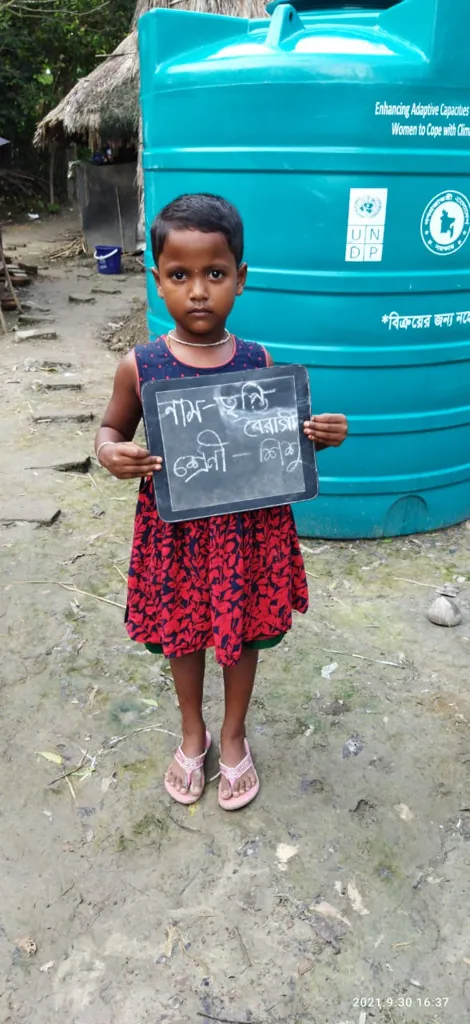 Enhancing Adaptive Capacities
Women to Cope with Clima
UN
DP
*বিক্রয়ের জন্য নহে
নাম-তৃপ্তি
বৈরাগী
শ্রেণী - শিশু
2021.9.30 16:37